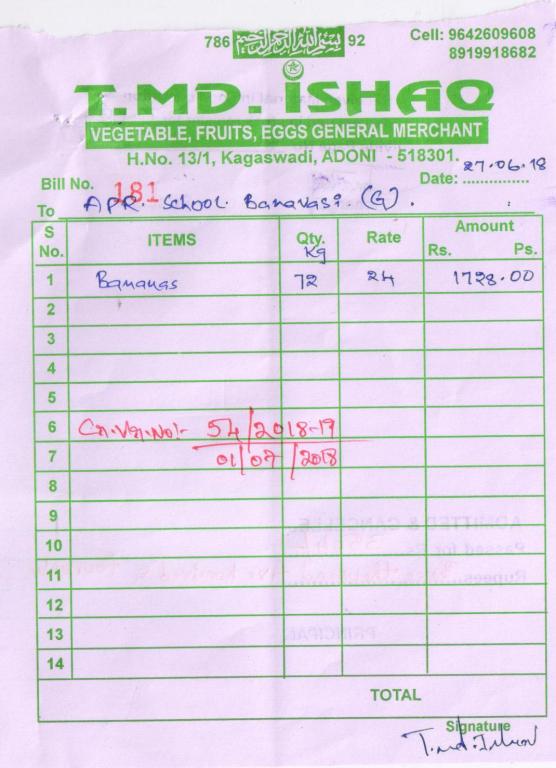 786 بسم الله الرحمن الرحيم 92
Cell: 9642609608
8919918682
T.MD. ISHAQ
VEGETABLE, FRUITS, EGGS GENERAL MERCHANT
H.No. 13/1, Kagaswadi, ADONI - 518301.
Bill No. 181 Date: 27.06.18
To APR. School Banavasi. (G).
S No. ITEMS Qty. Kg Rate Amount Rs. Ps.
1 Bananas 72 24 1728.00
2
3
4
5
6 Cr.Vr.No:- 54/2018-19
7 01/07/2018
8
9
10
11
12
13
14
TOTAL
Signature
T.md.